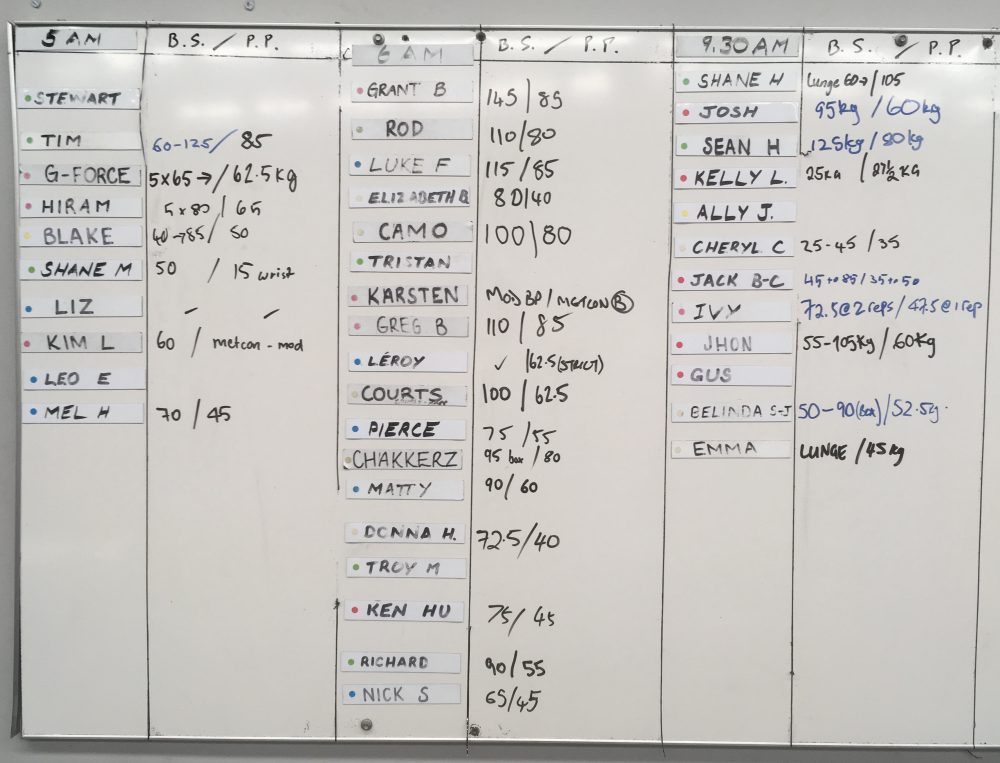 5 AM
B.S. / P.P.
STEWART
TIM 60-125/ 85
G-FORCE 5x65→/62.5kg
HIRAM 5x80/65
BLAKE 40→85/ 50
SHANE M 50 / 15 wrist
LIZ – / –
KIM L 60 / metcon-mod
LEO E
MEL H 70/45
6 AM
B.S. / P.P.
GRANT B 145/85
ROD 110/80
LUKE F 115/85
ELIZABETH B 80/40
CAMO 100\80
TRISTAN
KARSTEN MOD BP/METCON B
GREG B 110/85
LEROY ✓ /62.5(STRICT)
COURTS. 100/62.5
PIERCE 75/55
CHAKKERZ 95 box/80
MATTY 90/60
DONNA H. 72.5/40
TROY M
KEN HU 75/45
RICHARD 90/55
NICK S 65/45
9.30AM
B.S. / P.P.
SHANE H Lunge 60→/105
JOSH 95kg/60kg
SEAN H 125kg/80kg
KELLY L. 25KG /
ALLY J.
CHERYL C 25-45/35
JACK B-C 45to85/35to50
IVY 72.5@2reps/47.5@1rep
JHON 55-105kg/60kg
GUS
BELINDA S-J 50-90(box)/52.5kg.
EMMA LUNGE/45kg